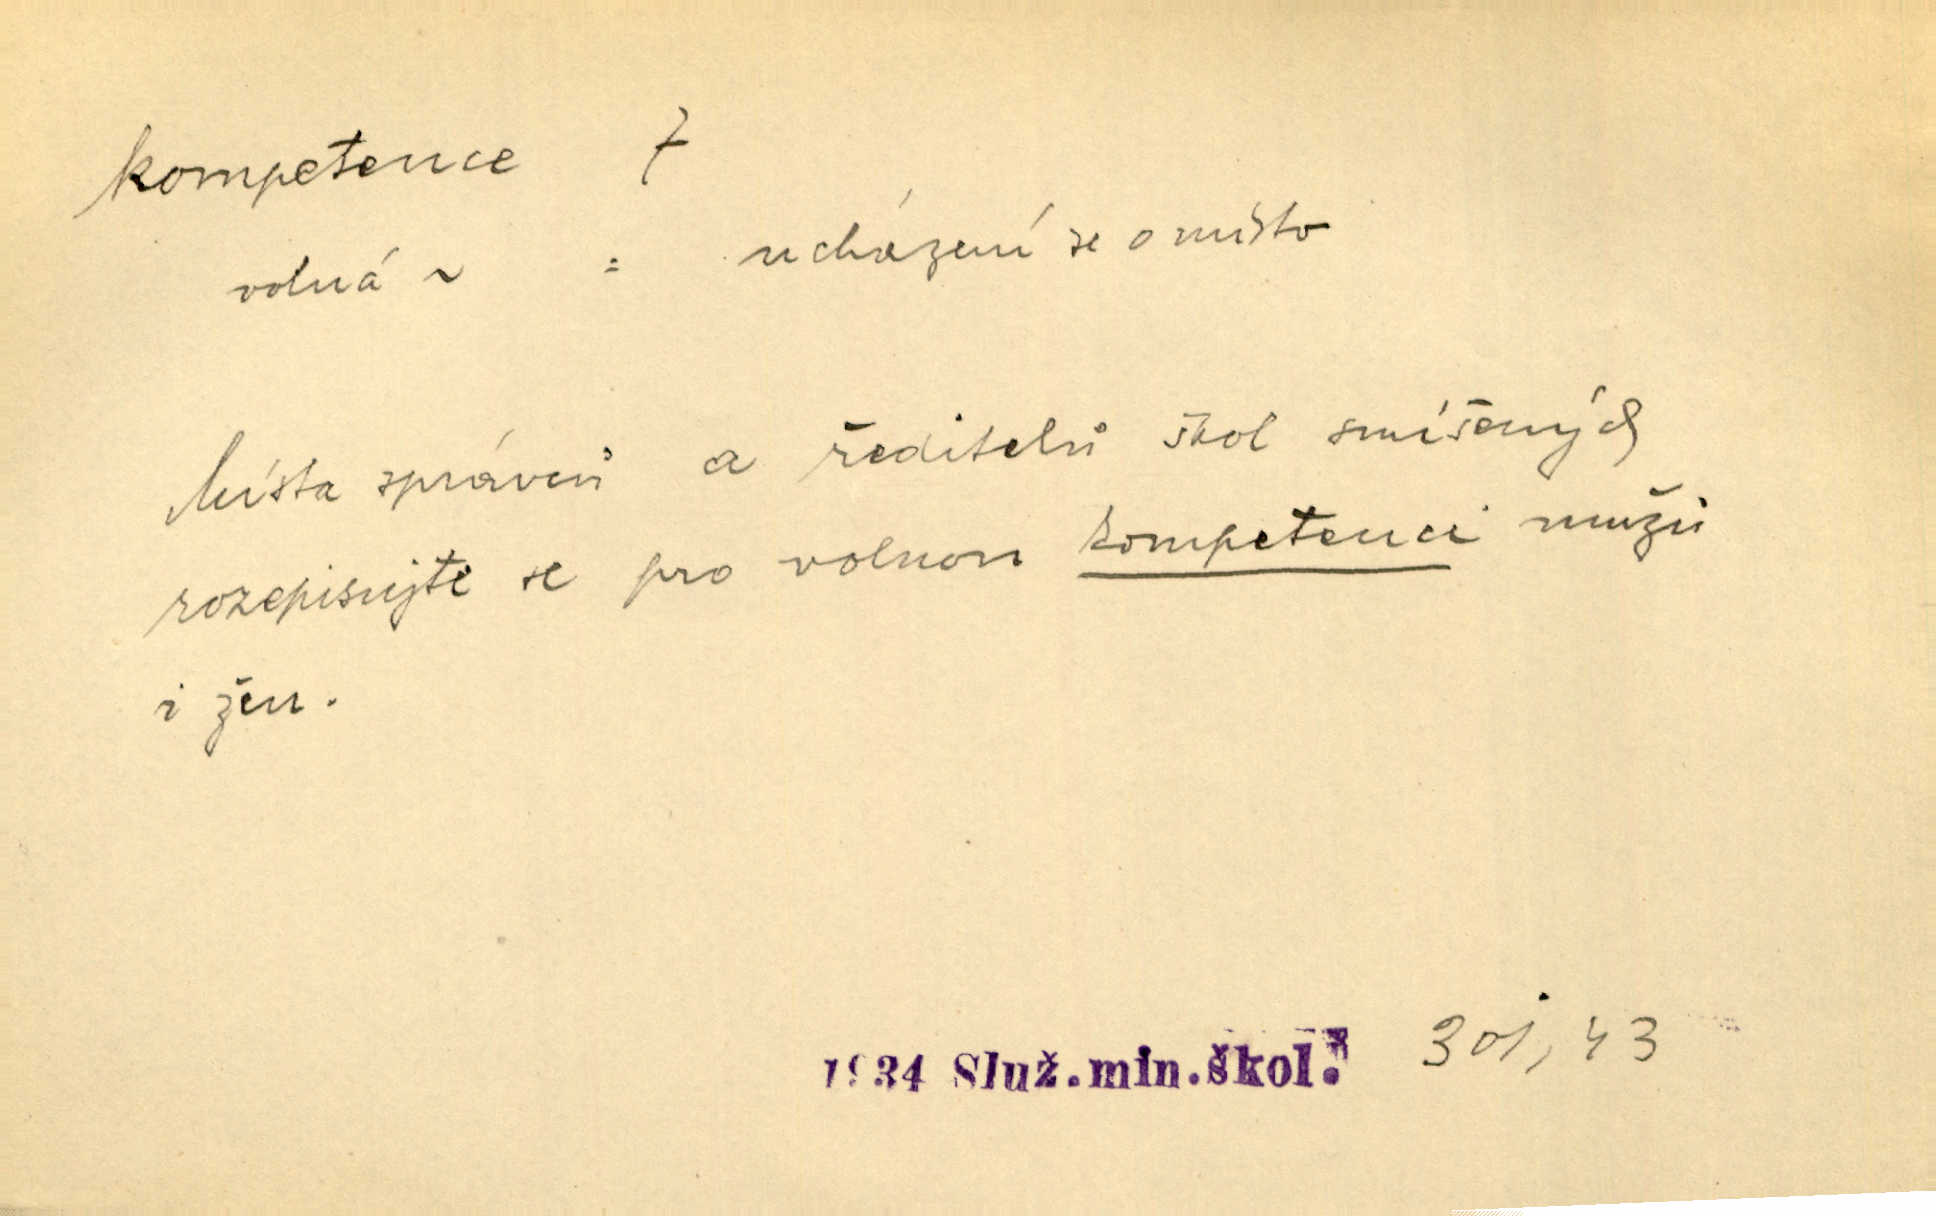 kompetence f
volná ~ = ucházení se o místo
Místa správců a ředitelů škol smíšených
rozepisujte se pro volnou kompetenci mužů
i žen.
1934 Služ.min.škol. 301, 43